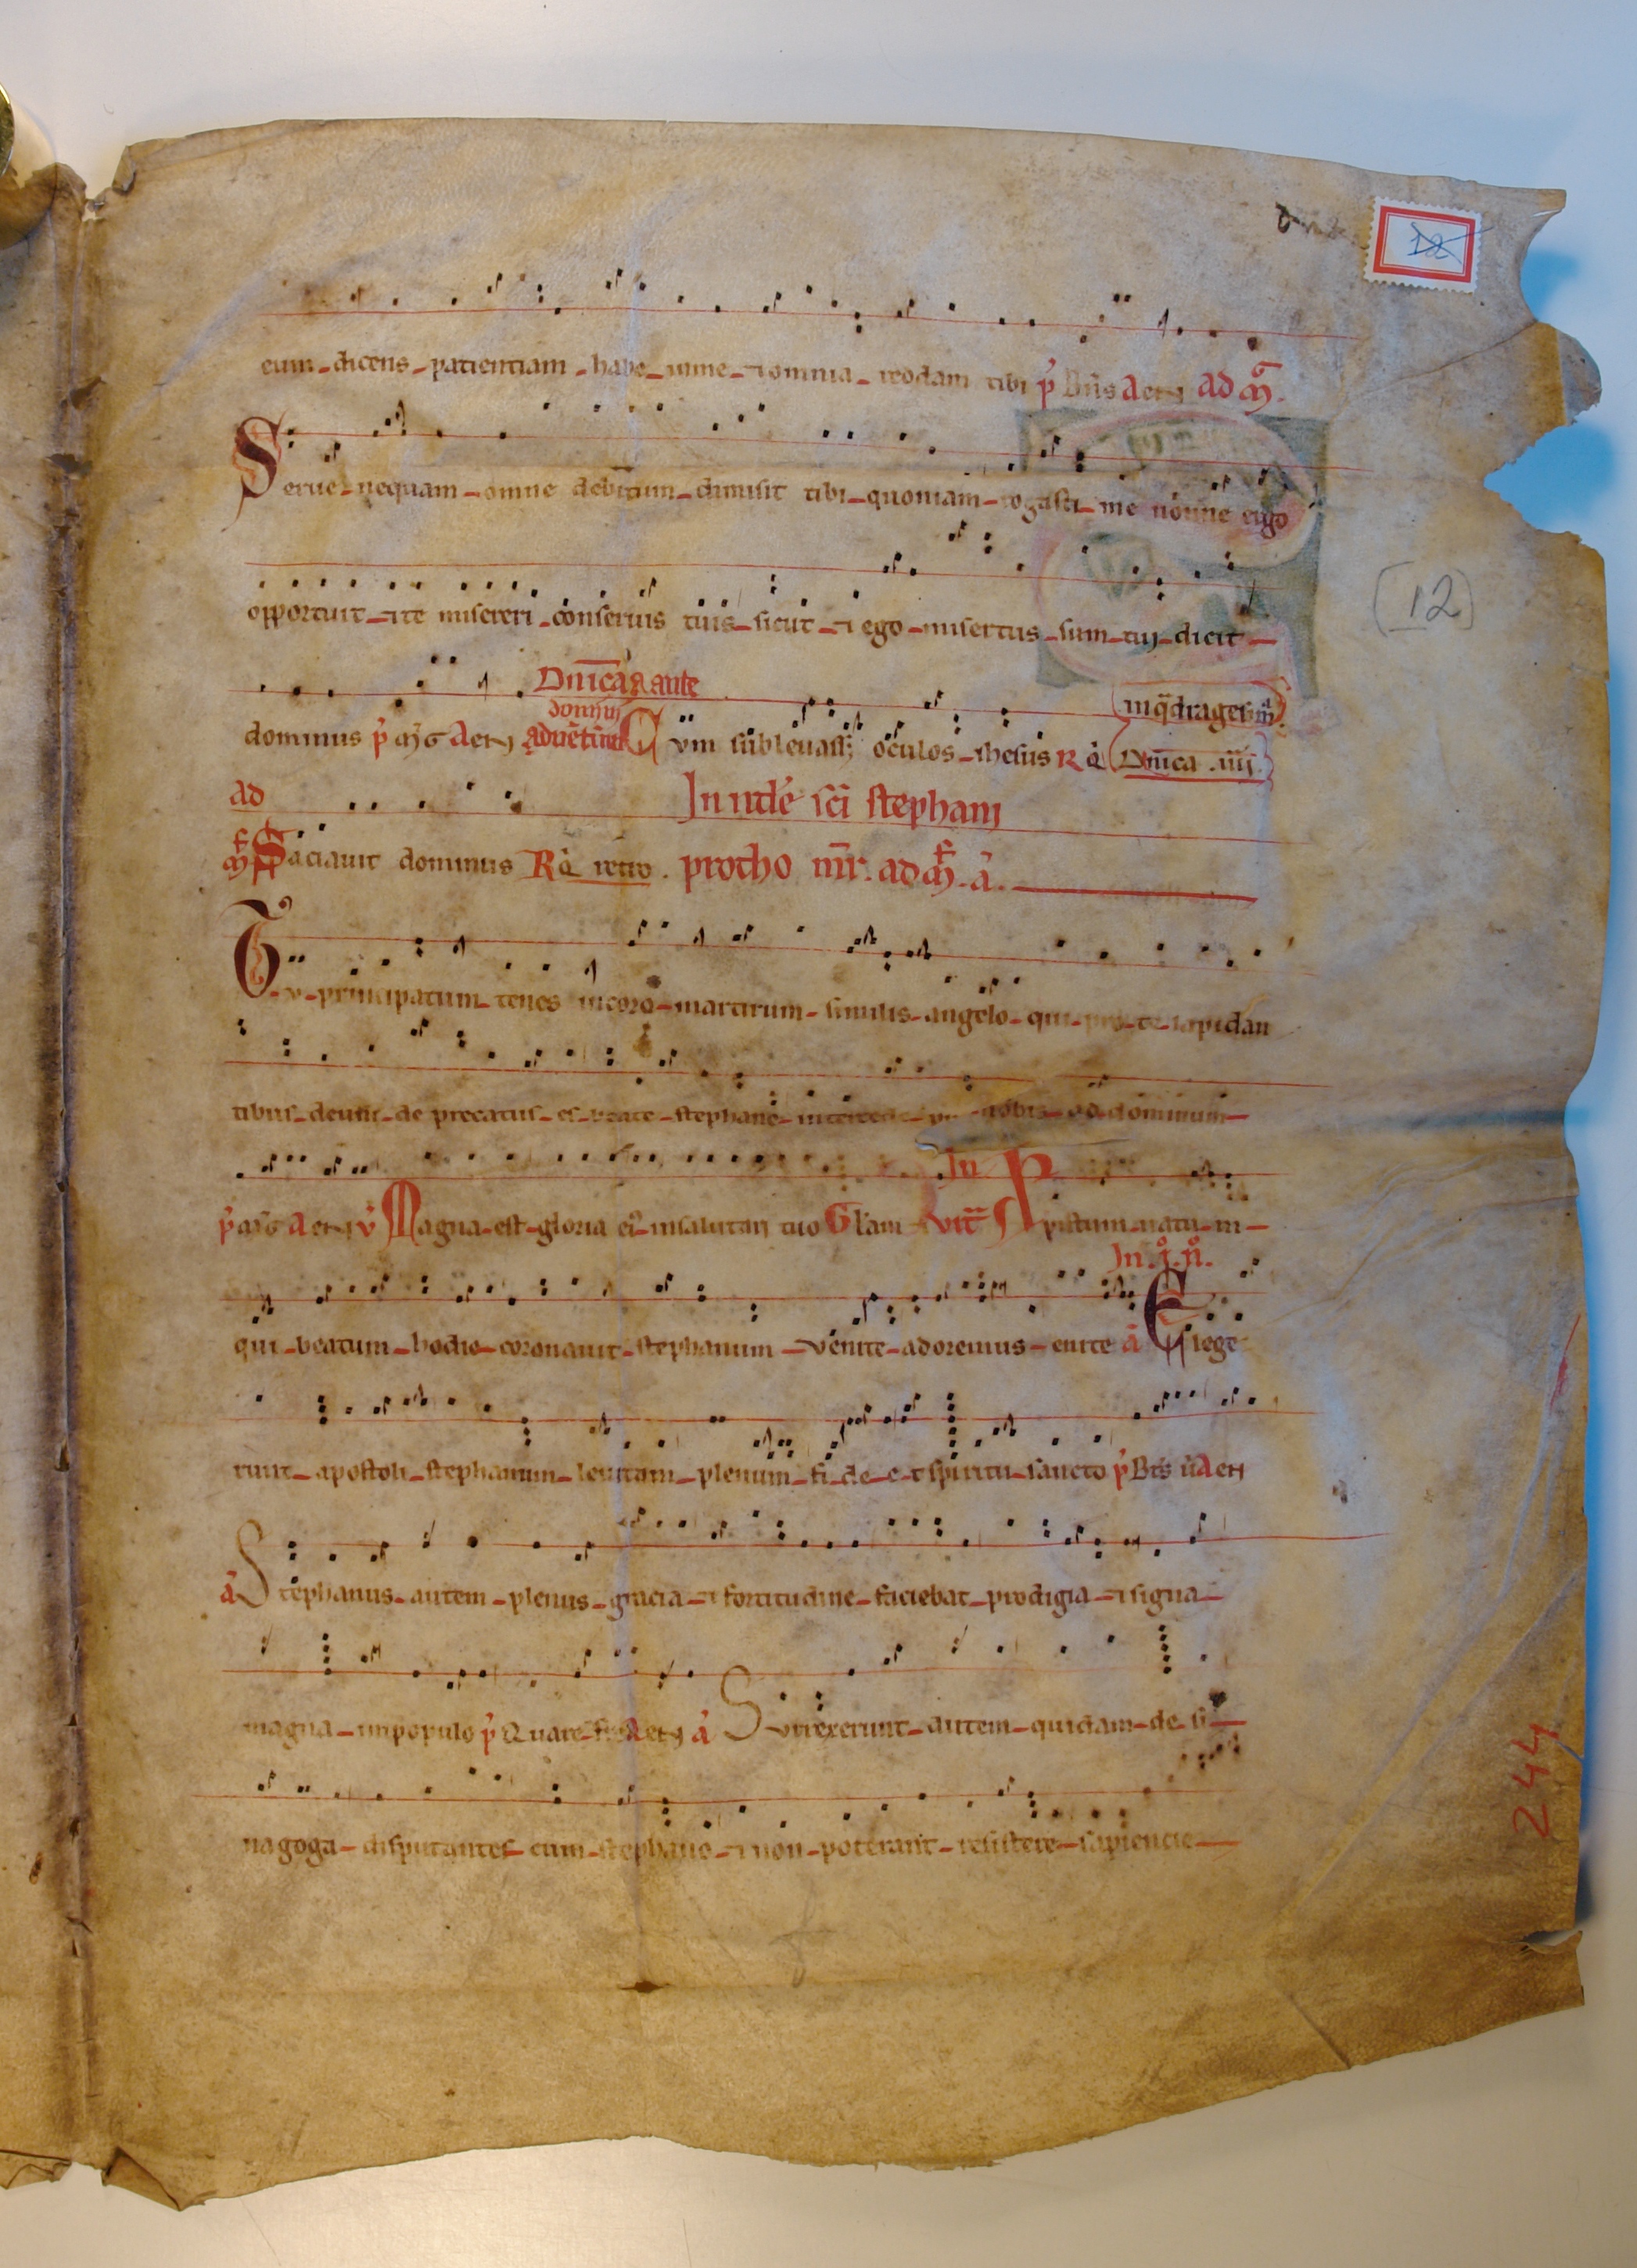 12
eum dicens patientiam habe inme ⁊ omnia reddam tibi p̉ Bn̄s Aeuia ad m̄.
Serue nequam omne debitum dimisit tibi quoniam rogasti me nonne ergo
[12]
opportuit ⁊ te misereri conseruis tuis sicut ⁊ ego misertus sum tuj dicit
Dn̄ica ante
domini
aduētū
in q̄dragesim̄
dominus p̉ Aeuia Cvm subleuass; oculos ihesus R Dn̄ica .iiij.
ad
In nt̄le sc̄i stephani
Saciauit dominus R retro. protho mr̄. ad m̄. ā.
Tv principatum tenes incoro martirum similis angelo qui pro te lapidan
tibus deum de precatus es beate stephane intercede pro nobis ad dominum
In
p̉ Aeuia v̉ Magna est gloria ei᷒ insalutarj tuo Gl̄am vit̄ Xpistum natum
In .i. n̊.
qui beatum hodie coronauit stephanum venite adoremus enite ā Elege
runt apostoli stephanum leuitam plenum fide et spiritu sancto p̉ Bt̄s ū Aeuia
ā Stephanus autem plenus gracia ⁊ fortitudine faciebat prodigia ⁊ signa
magna inpopulo p̉ Quare fr̄ Aeuia ā Surrexerunt autem quidam de si
nagoga disputantes cum stephano ⁊ non poterant resistere sapiencie
244